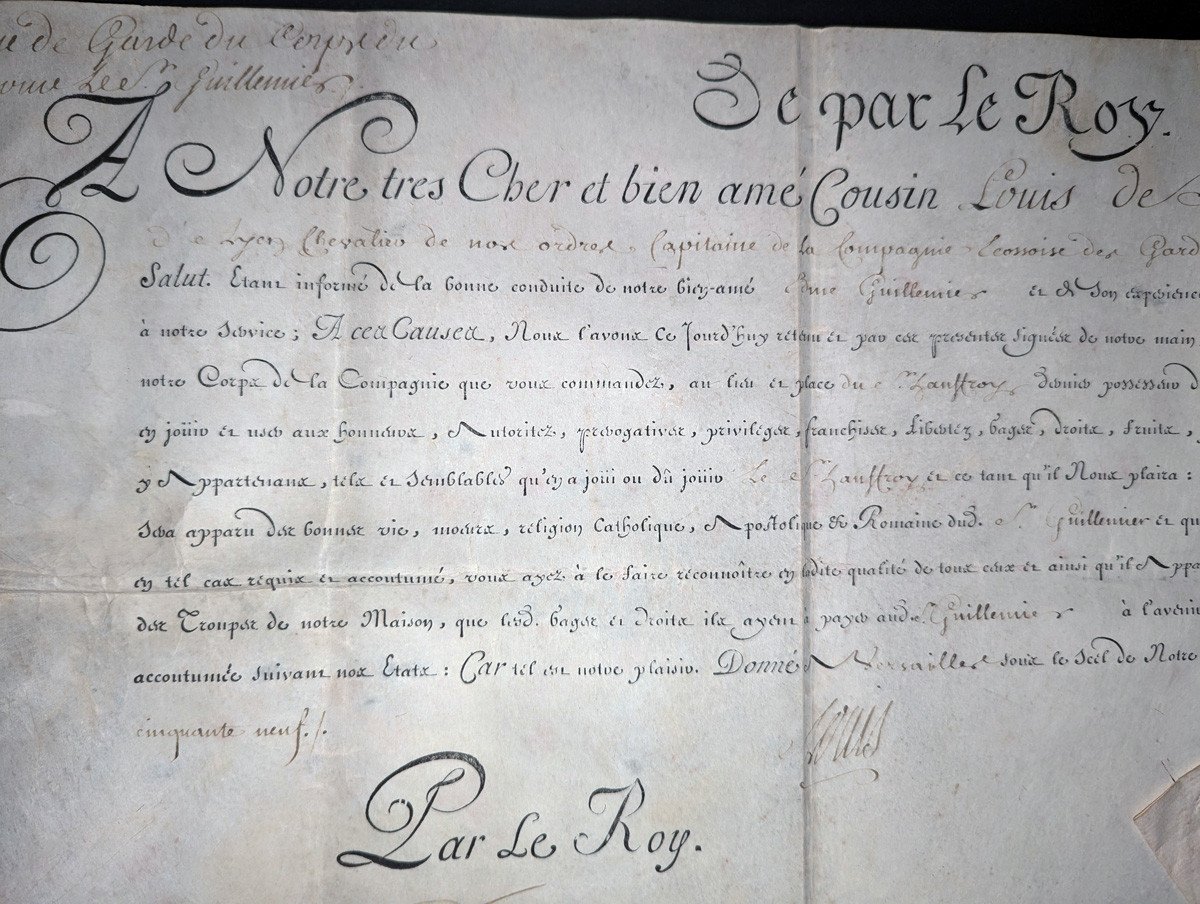 de Garde du Corps du
Le Sr. Guillemier
De par Le Roy.
A Notre tres Cher et bien amé Cousin Louis de
Chevalier de nos ordres, Capitaine de la Compagnie Ecossoise des Gard
Salut. Etant informé de la bonne conduite de notre bien-amé Edme Guillemier et de son experience
à notre service; A ces Causes, Nous l'avons ce Jourd'huy retenu et par ces presentes signées de notre main
notre Corps de la Compagnie que vous commandez, au lieu et place du Sr. dernier possesseur d
en joüir et user aux honneurs, Autoritez, prerogatives, privileges, franchises, Libertez, gages, droits, fruits,
y Appartenans, tels et semblables qu'en a joüi ou dû joüir Le Sr. et ce tant qu'il Nous plaira:
sera apparu des bonnes vie, moeurs, religion Catholique, Apostolique & Romaine dud. Sr. Guillemier et qu
en tel cas requis et accoutumé, vous ayez à le faire réconnoître en ladite qualité de tous ceux et ainsi qu'il Appa
des Troupes de notre Maison, que lesd. gages et droits ils ayent à payer aud. Sr. Guillemier à l'avenir
accoutumée suivant nos Etats: Car tel est notre plaisir. Donné à Versailles sous le Scel de Notre
cinquante neuf./.
Louis
Par Le Roy.